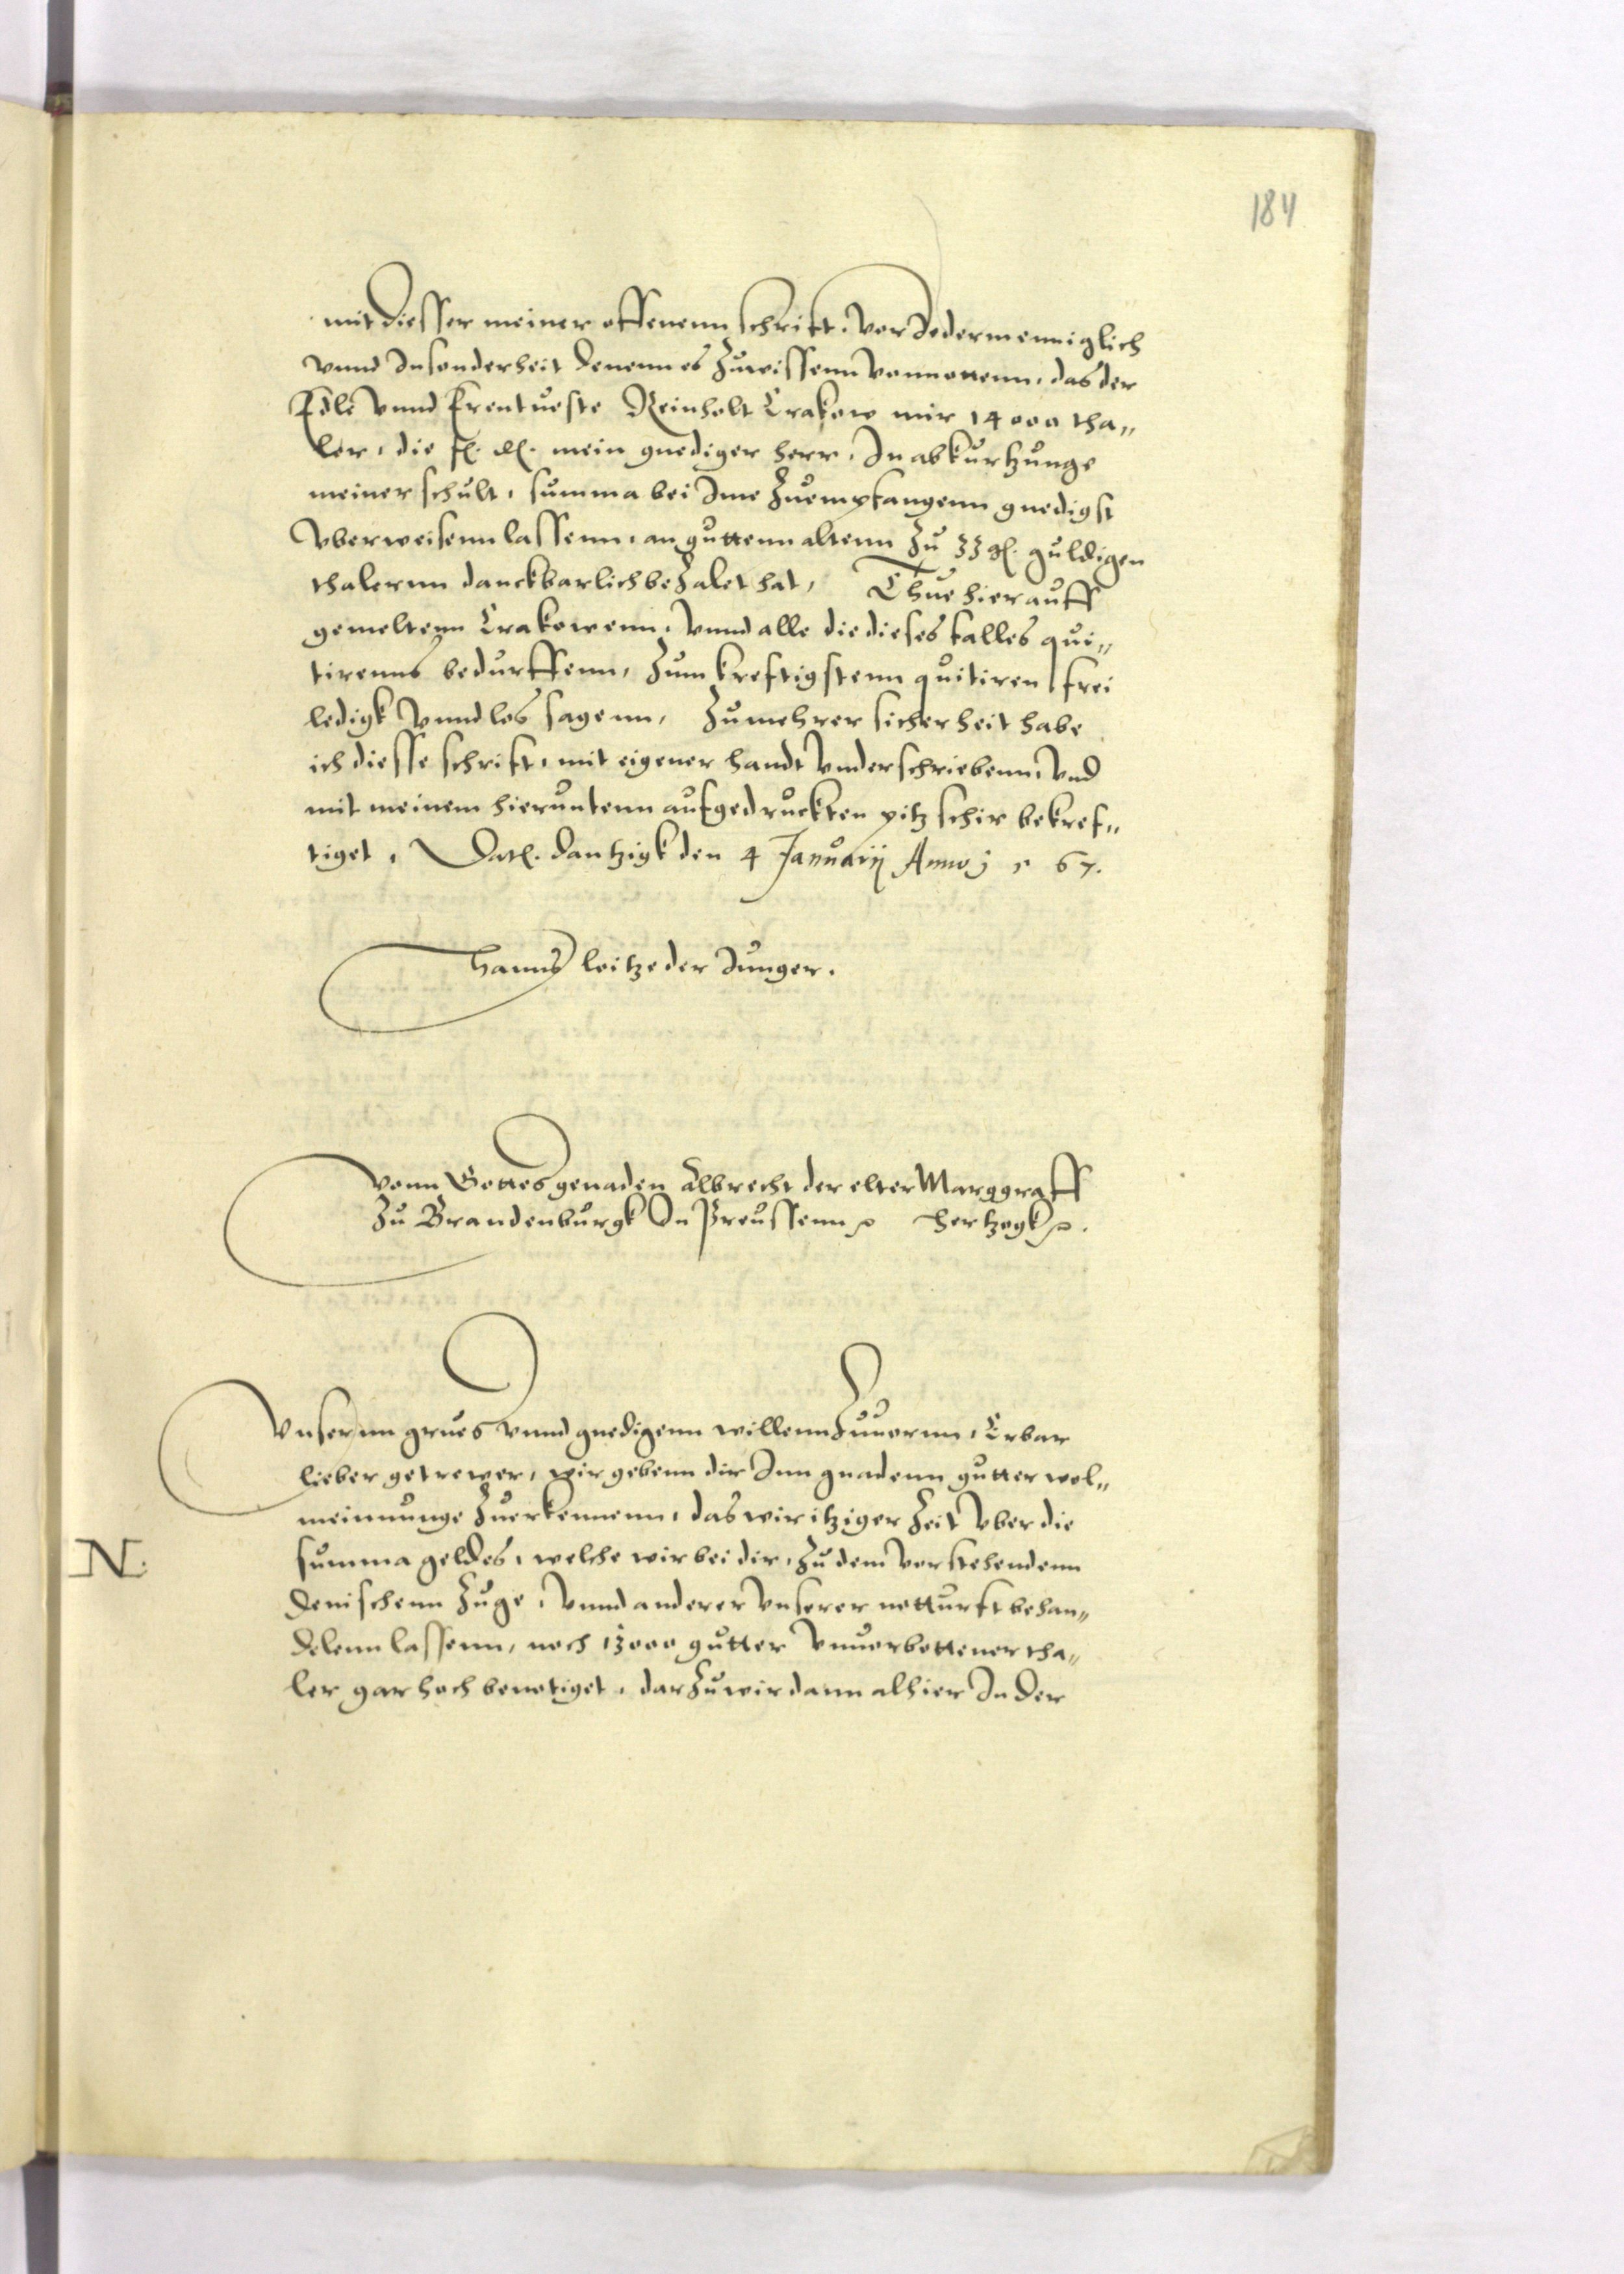 184
mit diesser meiner offenenn schrifft, vor Jedermenniglich
vnnd Jnsonderheit denenn es zuwissenn vonnottenn, das der
Edle vnnd Erentueste Reinholt Crakow mir 14000 tha„
ler, die f. d. mein gnediger herr, Jn abkurtzunge
meiner schult, summa bei Jme zuempfangenn gnedigst
vberweisenn lassenn, an guttenn altenn zu 33 g. guldigen
thalernn danckbarlich bezalet hat, Thue hierauff
gemeltenn Crakowenn, vnnd alle die dieses falles qui„
tirenns bedurffenn, zum kreftigstenn quitiren frei
ledigk vnnd los sagenn, Zu mehrer sicherheit habe
ich diesse schrift, mit eigener handt vnderschriebenn, vnd
mit meinem hieruntenn aufgedruckten pitzschir bekref„
tiget, Dat. dantzigk den 4 Januarij Anno 67.
Hanns loitze der Junger.
Vonn Gottes genaden Albrecht der elter Marggraff
zu Brandenburgk Jn Preussenn Hertzogk
Vnsernn grues vnnd gnedigenn willenn zuuornn, Erbar
lieber getrewer, wir gebenn dir Jnn gnadenn gutter wol„
meinunge zuerkennenn, das wir itziger zeit vber die
N. summa geldes, welche wir bei dir, zu dem vorstehendenn
denischenn zuge, vnnd anderer vnserer notturft behan„
delenn lassenn, noch 13000 gutter vnuerbottener tha„
ler gar hoch benotiget, darzu wir dann alhier Jn der